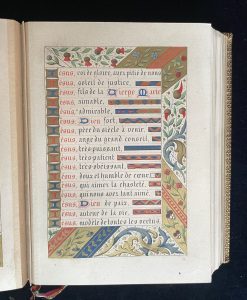 Jésus, roi de gloire, ayez pitié de nous
Jésus, soleil de justice,
Jésus, fils de la Vierge Marie
Jésus, aimable,
Jésus, admirable,
Jésus, Dieu fort,
Jésus, père du siècle à venir,
Jésus, ange du grand conseil,
Jésus, très puissant,
Jésus, très patient
Jésus, très obéissant,
Jésus, doux et humble de cœur,
Jésus, qui aimez la chasteté,
Jésus, qui nous avez tant aimé,
Jésus, Dieu de paix,
Jésus, auteur de la vie,
Jésus, modèle de toutes les vertus